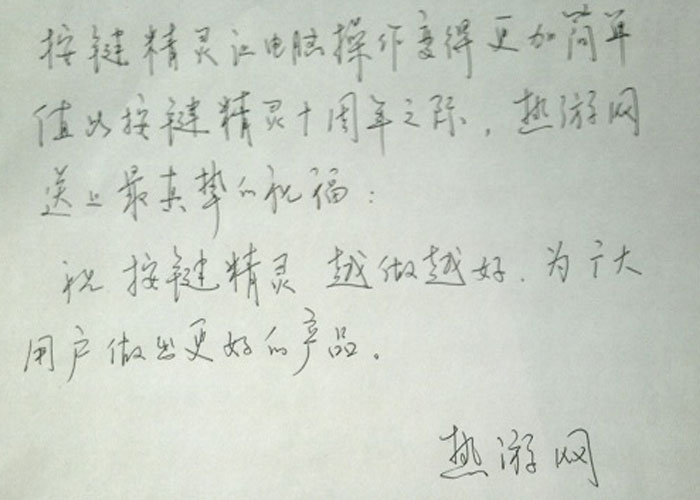 按键精灵让电脑操作变得更加简单
值此按键精灵十周年之际，热游网
送上最真挚的祝福：
祝 按键精灵 越做越好，为广大
用户做出更好的产品。
热游网